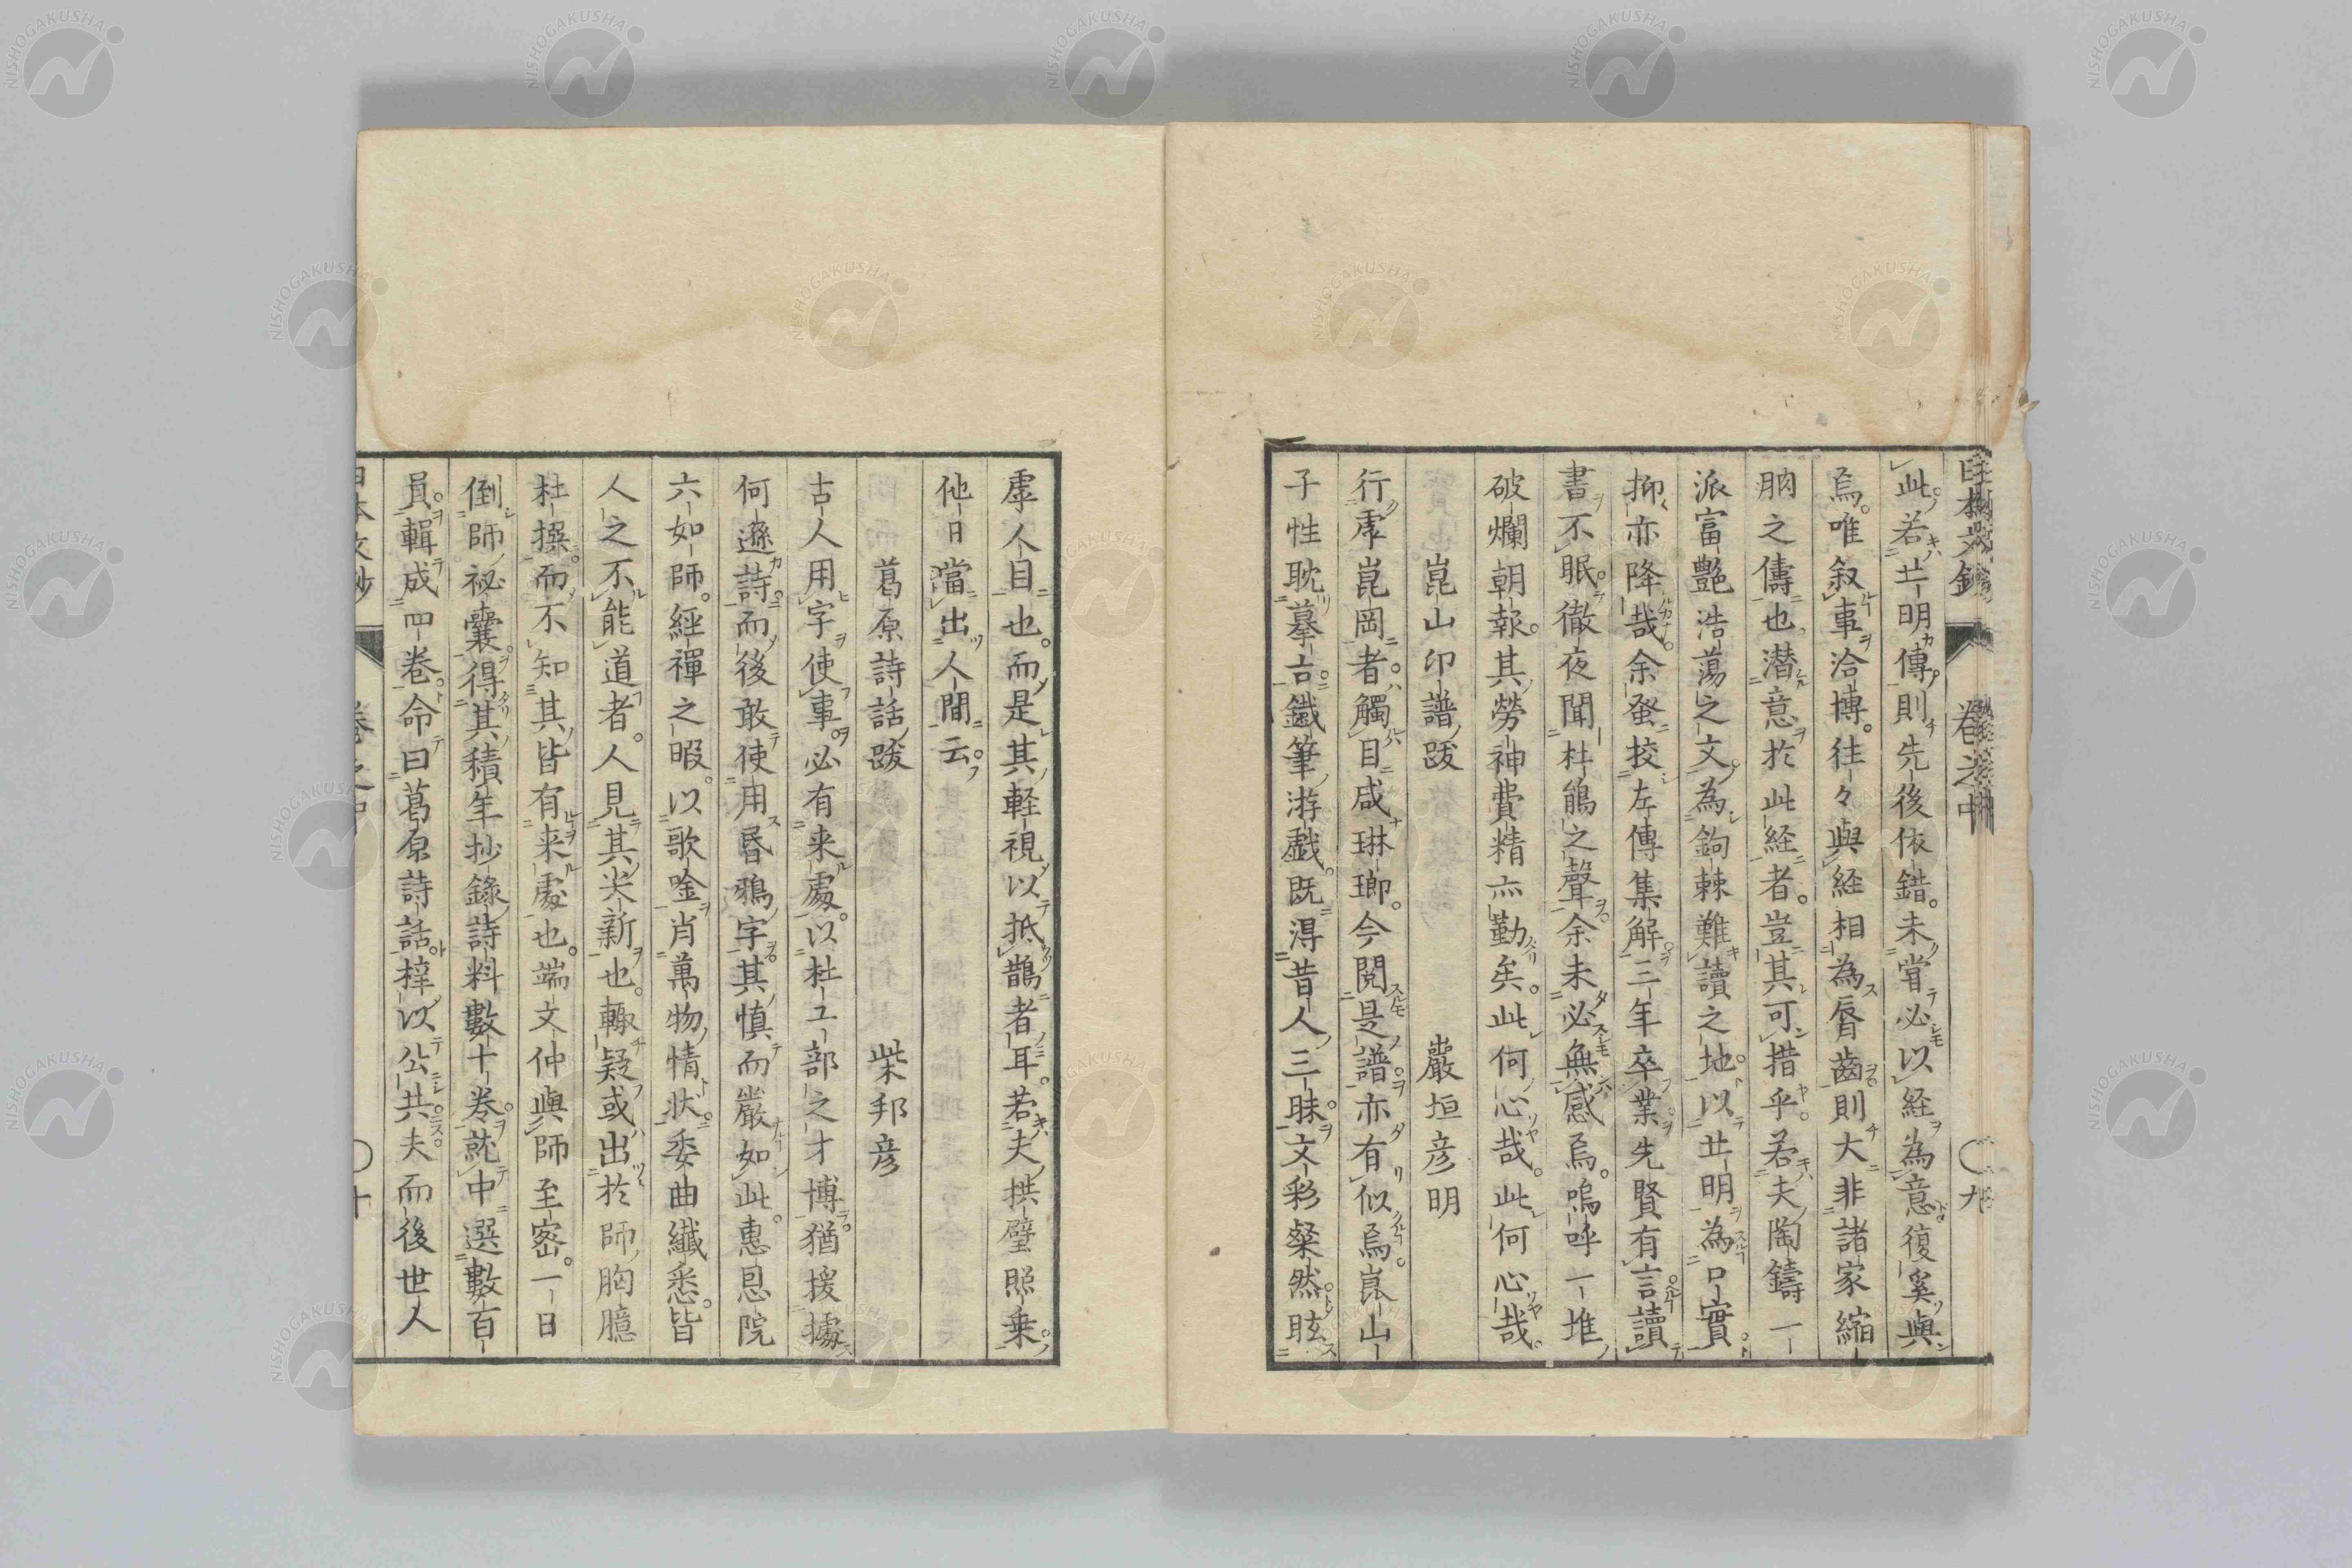 日本文鈔 卷之中 〇九
此若丘明傳則先後依錯未嘗必以経為意復奚與
焉唯叙事洽博往々與経相為唇齒則大非諸家縮
朒之儔也潜意於此経者豈其可措乎若夫陶鑄一
派富艶浩蕩之文為鉤棘難讀之地以丘明為口實
抑亦降哉余蚤挍左傳集解三年卒業先賢有言讀
書不眠徹夜聞杜鵑之聲余未必無感焉嗚呼一堆
破爛朝報其勞神費精亦勤矣此何心哉此何心哉
崑山印譜跋 巖垣彦明
行虖崑岡者觸目咸琳瑯今閲是譜亦有似焉崑山
子性耽摹古鐵筆游戲既得昔人三昧文彩粲然眩
虖人目也而是其軽視以抵鵲者耳若夫拱璧照乗
他日當出人間云
葛原詩話跋 柴邦彦
古人用字使事必有来處以杜工部之才博猶援據
何遜詩而後敢使用昏鴉字其慎而嚴如此惠恩院
六如師経禪之暇以歌唫肖萬物情状委曲纎悉皆
人之不能道者人見其尖新也輙疑或出於師胸臆
杜撰而不知其皆有来處也端文仲與師至密一日
倒師祕囊得其積年抄錄詩料數十卷就中選數百
員輯成四卷命曰葛原詩話梓以公共夫而後世人
日本文鈔 卷之中 〇十
NISHOGAKUSHA